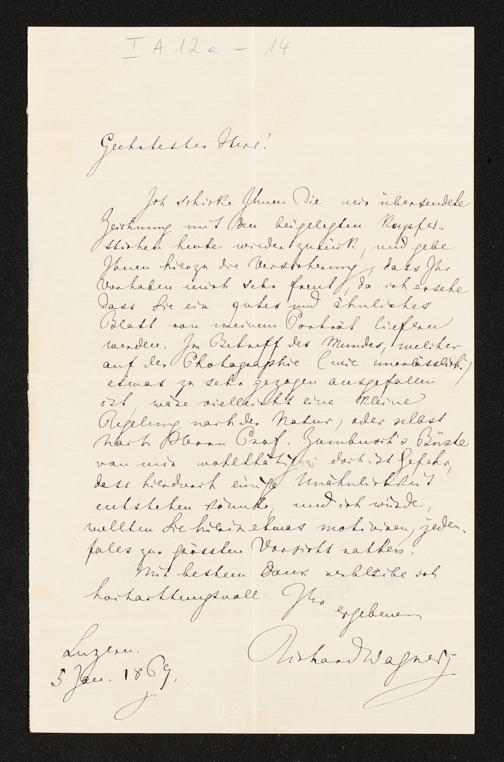 I A 12a – 14
Geehrtester Herr!
Ich schicke Ihnen die mir übersendete
Zeichnung mit den beigelegten Kupfer-
stichen heute wieder zurück, und gebe
Ihnen hierzu die Versicherung, dass Ihr
Vorhaben mich sehr freut, da ich ersehe
dass Sie ein gutes und ähnliches
Blatt von meinem Porträt liefern
werden. Im Betreff des Mundes, welcher
auf der Photographie (wie unerlässlich)
etwas zu sehr gezogen ausgefallen
ist, wäre vielleicht eine kleine
Regelung nach der Natur, oder selbst
nach Herrn Prof. Zumbusch's Büste
von mir wohlthätig; doch ist Gefahr,
dass hierdurch einige Unähnlichkeit
entstehen könnte, und ich würde,
wollten Sie hierin etwas motiviren, jeden-
falls zur grössten Vorsicht rathen.
Mit bestem Dank verbleibe ich
hochachtungsvoll Ihr
ergebener
Luzern. Richard Wagner
5 Jan. 1869.